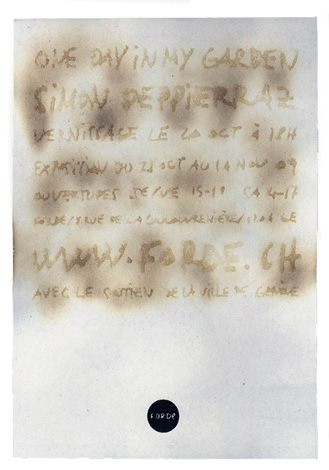 ONE DAY iN MY GARDEN
SiMON DEPPiERRAZ
VERNISSAGE LE 20 OCT À 18H
EXPOSITION DU 21 OCT AU 14 NOV 09
OUVERTURES JE/VE 15-19 SA 14-17
FORDE/ RUE DE LA COULOUVRENIÈRE/ GE
WWW.FORDE.CH
AVEC LE SOUTIEN DE LA VILLE DE GENÈVE
FORDE